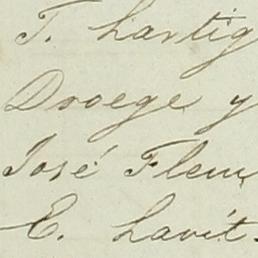 T. Lartig
Droege y
José Flem
E. Lavit.